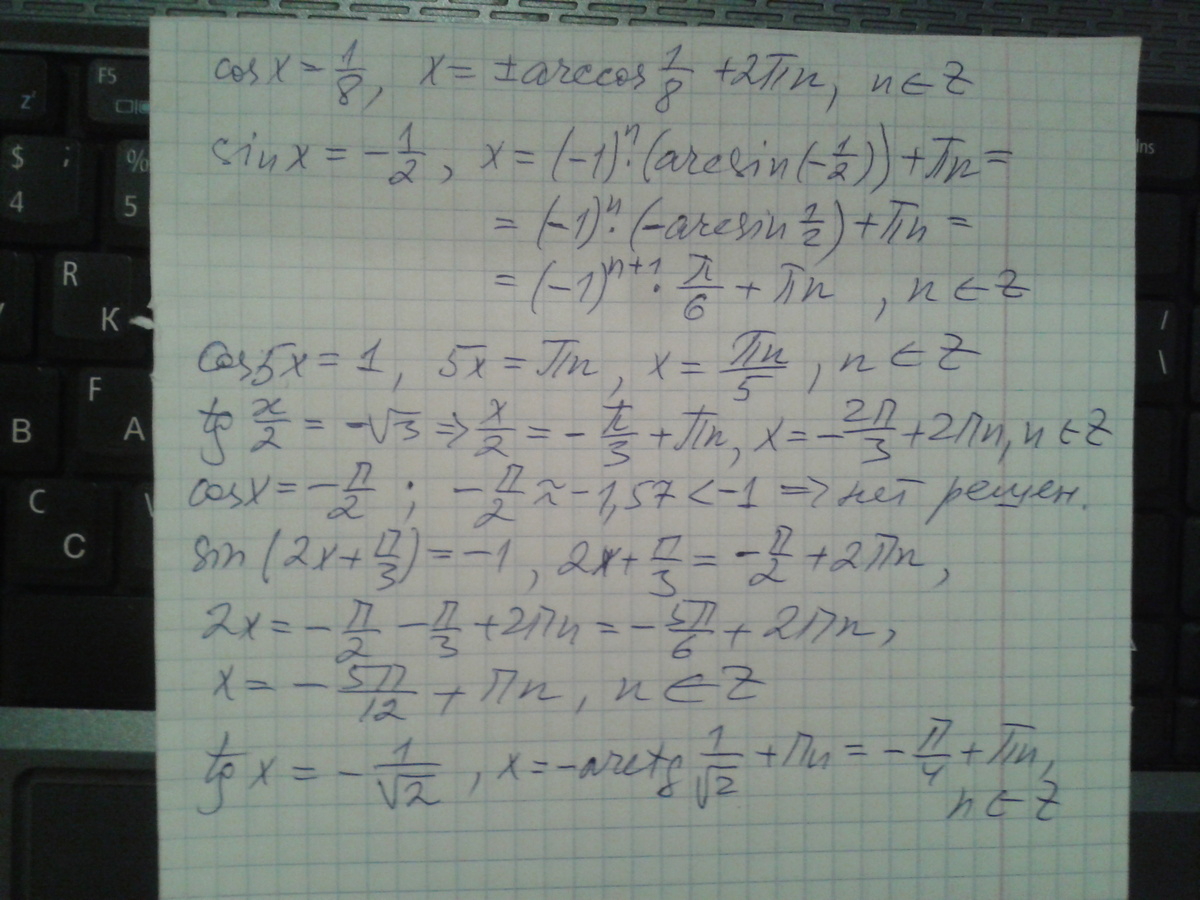 cos x = 1/8, x = ± arccos 1/8 + 2πn, n ∈ Z
sin x = -1/2, x = (-1)ⁿ · (arcsin(-1/2)) + πn =
= (-1)ⁿ · (-arcsin 1/2) + πn =
= (-1)ⁿ⁺¹ · π/6 + πn , n ∈ Z
cos 5x = 1, 5x = πn, x = πn/5, n ∈ Z
tg x/2 = -√3 => x/2 = -π/3 + πn, x = -2π/3 + 2πn, n ∈ Z
cos x = -π/2 ; -π/2 ≈ -1,57 < -1 => нет решен.
sin (2x + π/3) = -1, 2x + π/3 = -π/2 + 2πn,
2x = -π/2 - π/3 + 2πn = -5π/6 + 2πn,
x = -5π/12 + πn, n ∈ Z
tg x = -1/√2, x = -arctg 1/√2 + πn = -π/4 + πn,
n ∈ Z
F5
z'
$ ;
4
%
5
R
К
F
А
В
C
С
Ins
/
\